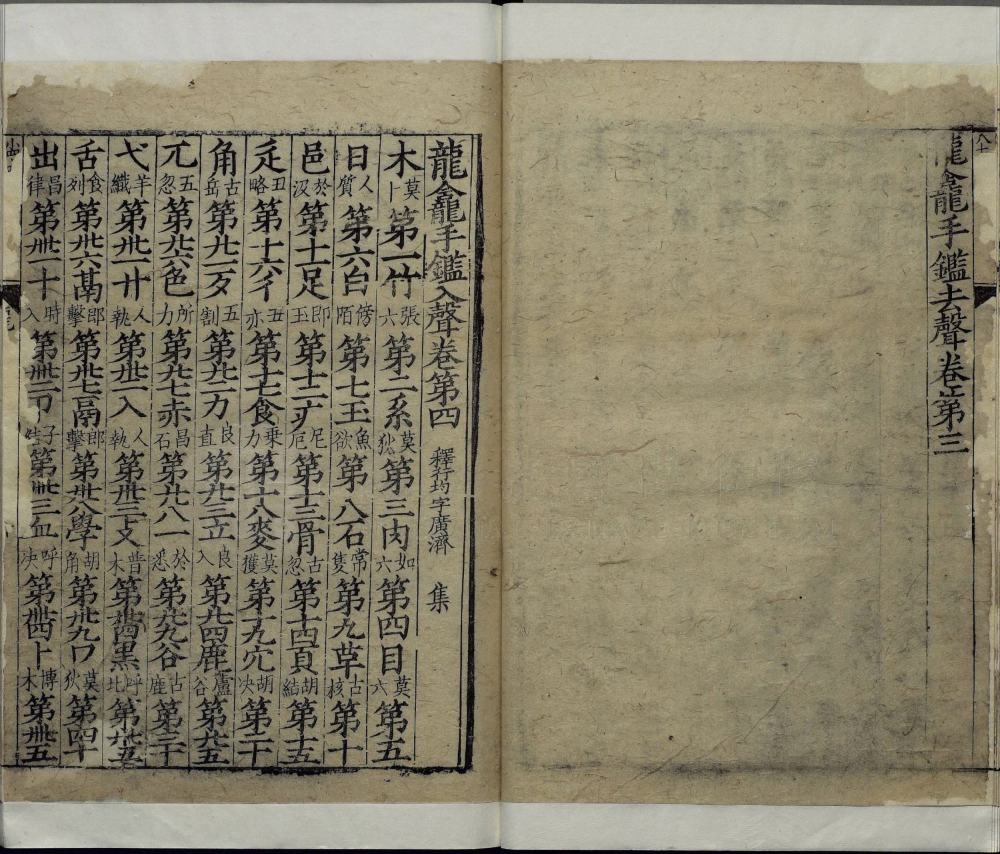 龍龕手鑑去聲卷第三
龍龕手鑑入聲卷第四 釋行均字廣濟 集
木莫卜第一竹張六第二糸莫狄第三肉如六第四目莫六第五
日人質第六白傍陌第七玉魚欲第八石常隻第九革古核第十
邑於汲第十一足即玉第十二疒尼厄第十三骨古忽第十四頁胡結第十五
辵丑略第十六彳丑亦第十七食乗力第十八麥莫獲第十九穴胡决第二十
角古岳第廿一歹五割第廿二力良直第廿三立良入第廿四鹿盧谷第廿五
兀五忽第廿六色所力第廿七赤昌石第廿八一於悉第廿九谷古鹿第三十
弋羊纖第卅一廿人執第卅二入人執第卅三攴普木第卅四黑呼北第卅五
舌食列第卅六郎擊第卅七鬲郎擊第卅八學胡角第卅九冖莫狄第四十
出昌律第卌一十時入第卌二卩子第卌三血呼决第卌四卜博木第卌五